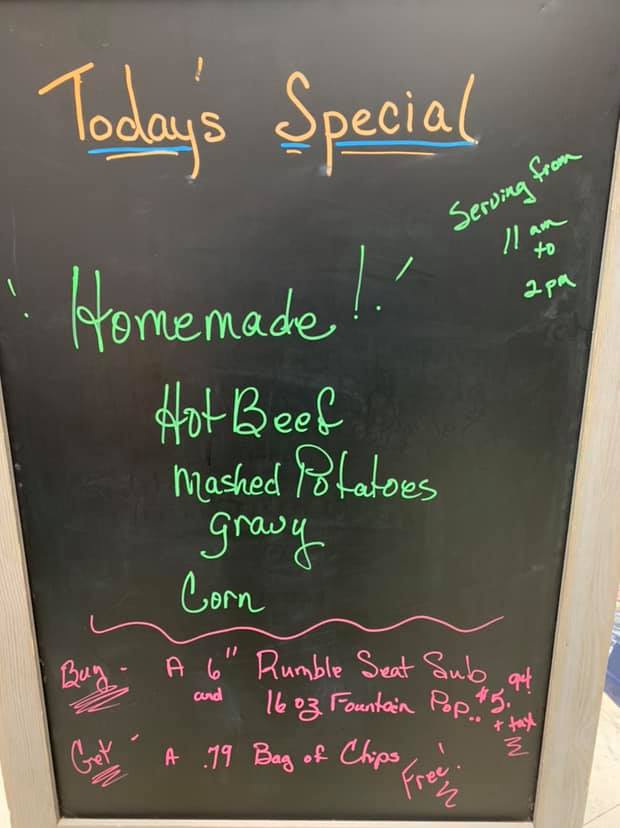 Today's Special
Serving from
11 am
to
2 pm
Homemade!!
Hot Beef
Mashed Potatoes
gravy
Corn
Buy - A 6" Rumble Seat Sub
and 16 oz Fountain Pop.. $5.94
+ tax
Get - A .79 Bag of Chips
Free!